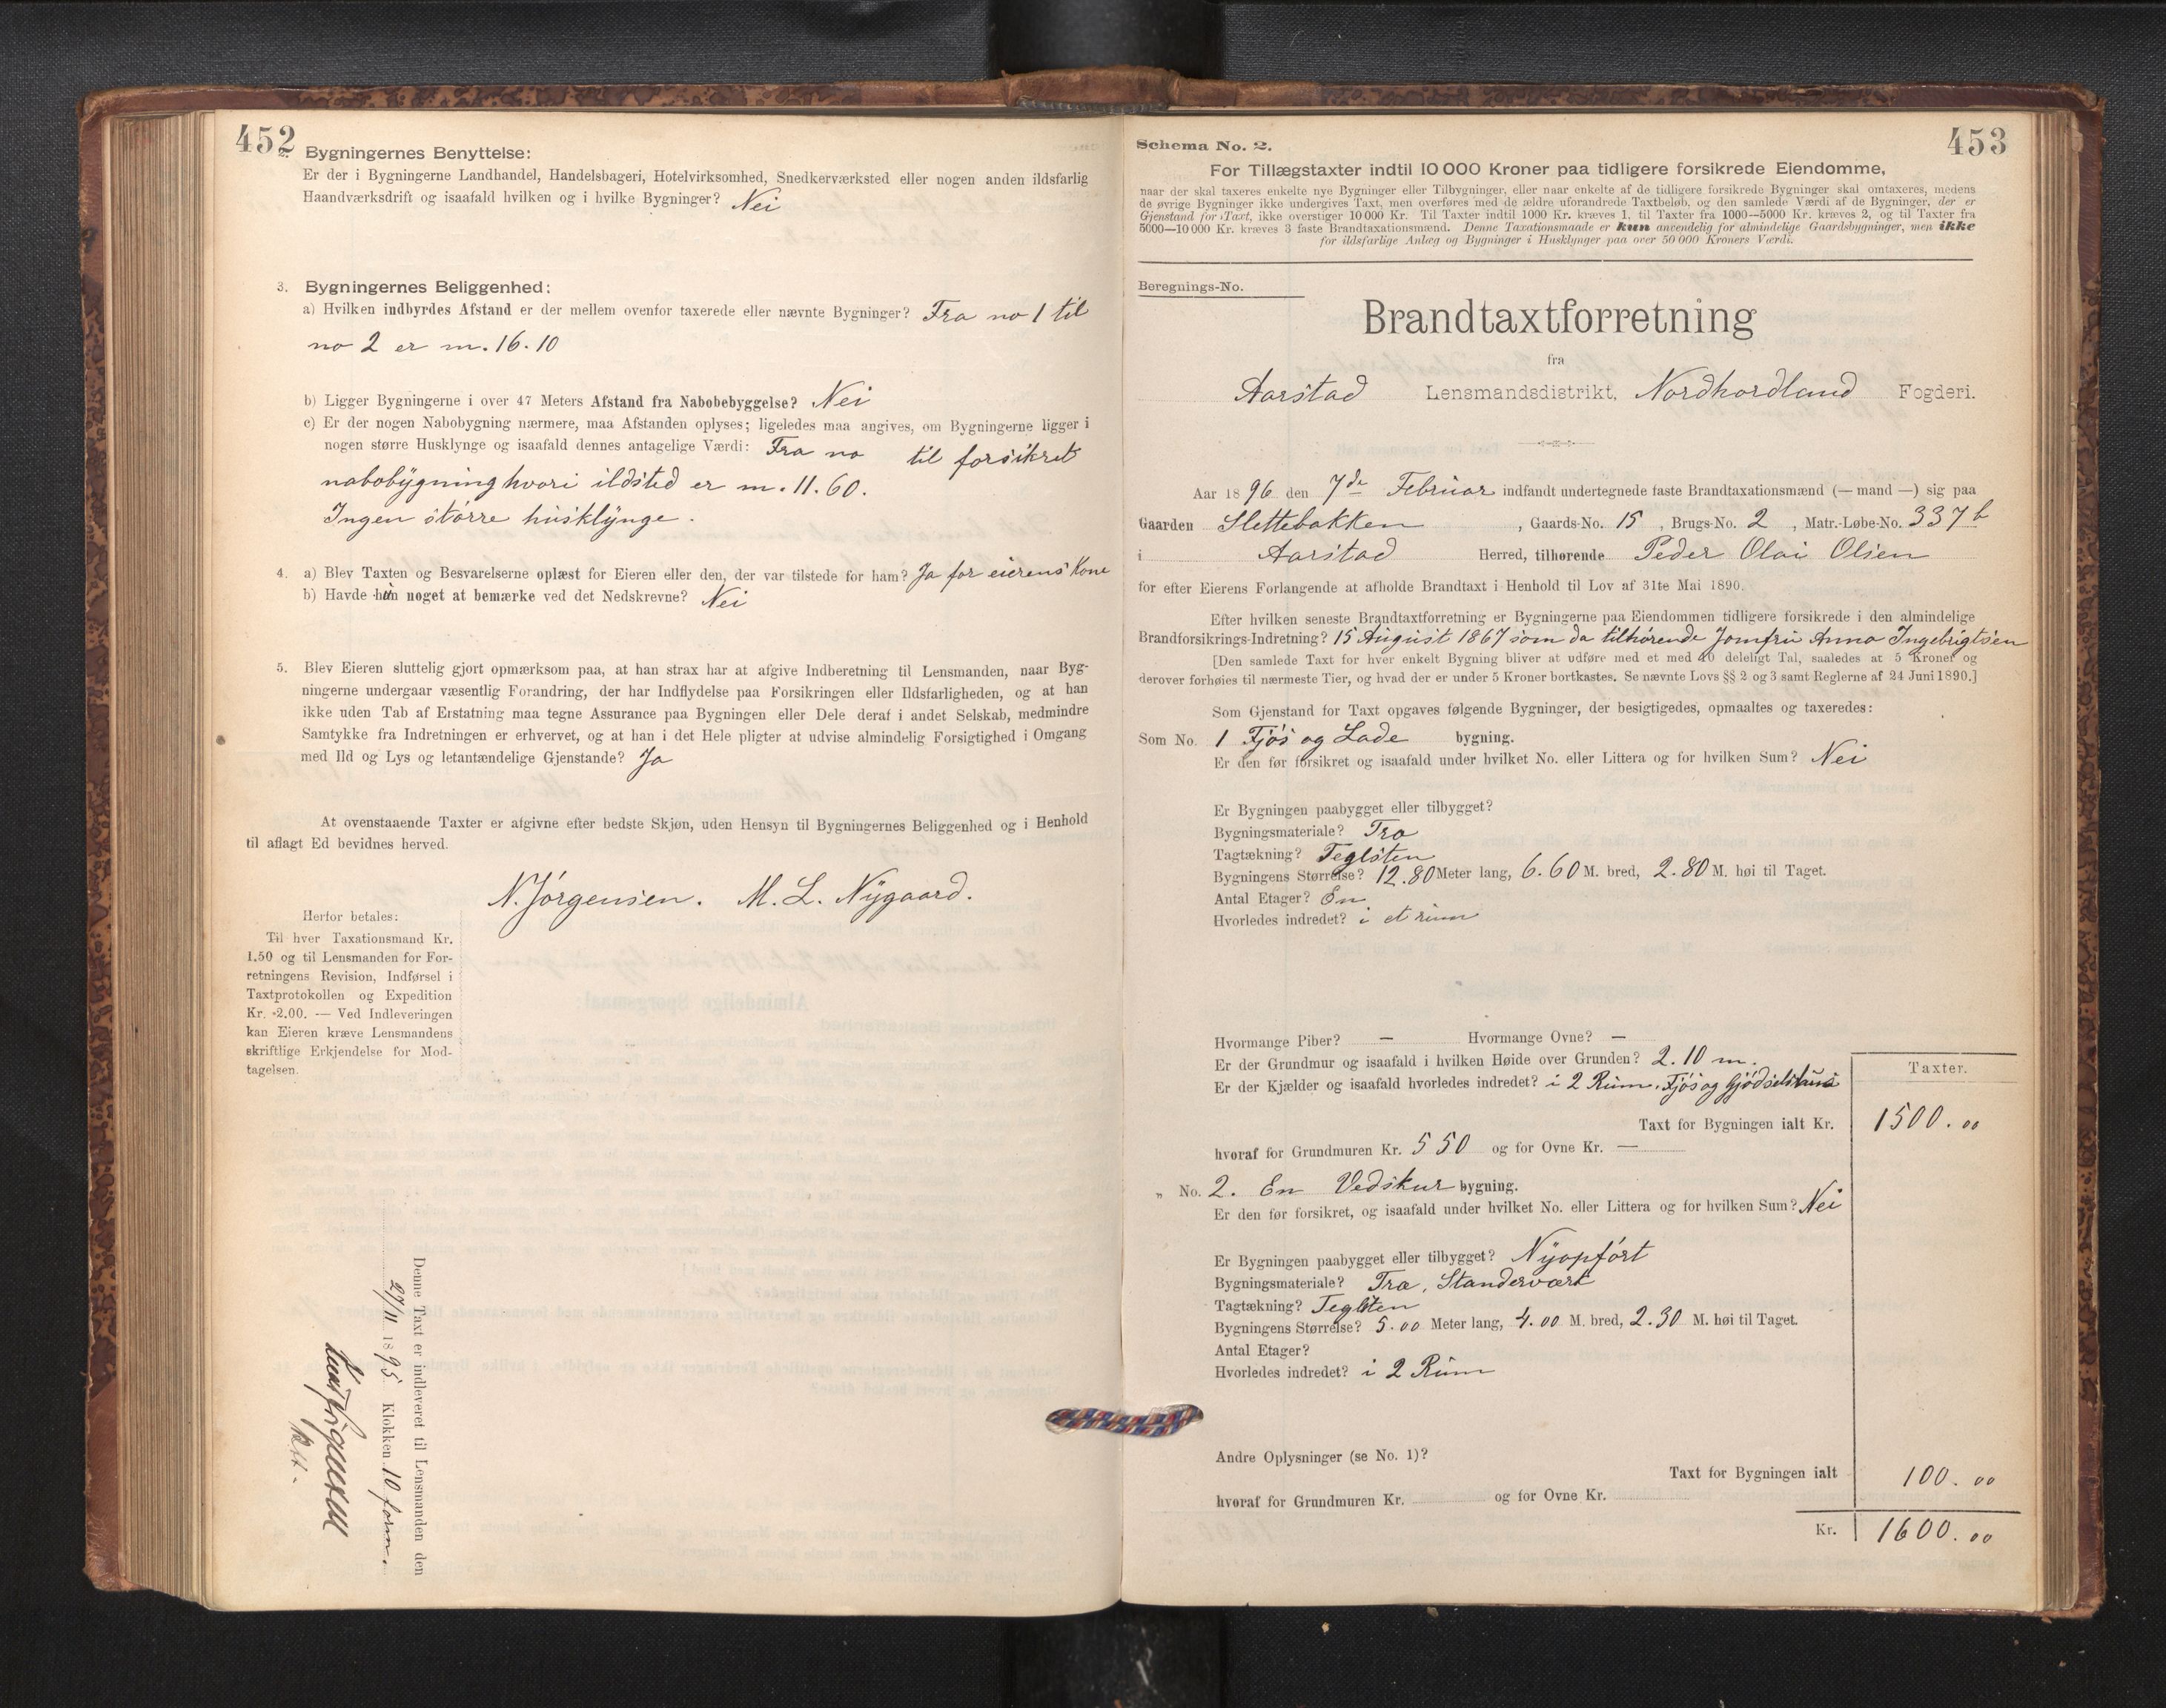 452
2. Bygningernes Benyttelse:
Er der i Bygningerne Landhandel, Handelsbageri, Hotelvirksomhed, Snedkerværksted eller nogen anden ildsfarlig
Haandværksdrift og isaafald hvilken og i hvilke Bygninger? Nei
3. Bygningernes Beliggenhed:
a) Hvilken indbyrdes Afstand er der mellem ovenfor taxerede eller nævnte Bygninger? Fra no 1 til
no 2 er m. 16.10
b) Ligger Bygningerne i over 47 Meters Afstand fra Nabobebyggelse? Nei
c) Er der nogen Nabobygning nærmere, maa Afstanden oplyses; ligeledes maa angives, om Bygningerne ligger i
nogen større Husklynge og isaafald dennes antagelige Værdi: Fra no til forsikret
nabobygning hvori ildsted er m. 11.60.
Ingen större husklynge.
4. a) Blev Taxten og Besvarelserne oplæst for Eieren eller den, der var tilstede for ham? Ja for eierens Kone
b) Havde hun noget at bemærke ved det Nedskrevne? Nei
5. Blev Eieren sluttelig gjort opmærksom paa, at han strax har at afgive Indberetning til Lensmanden, naar Byg-
ningerne undergaar væsentlig Forandring, der har Indflydelse paa Forsikringen eller Ildsfarligheden, og at han
ikke uden Tab af Erstatning maa tegne Assurance paa Bygningen eller Dele deraf i andet Selskab, medmindre
Samtykke fra Indretningen er erhvervet, og at han i det Hele pligter at udvise almindelig Forsigtighed i Omgang
med Ild og Lys og letantændelige Gjenstande? Ja
At ovenstaaende Taxter er afgivne efter bedste Skjøn, uden Hensyn til Bygningernes Beliggenhed og i Henhold
til aflagt Ed bevidnes herved.
N. Jörgensen. M. L. Nygaard.
Herfor betales:
Til hver Taxationsmand Kr.
1.50 og til Lensmanden for For-
retningens Revision, Indførsel i
Taxtprotokollen og Expedition
Kr. 2.00. — Ved Indleveringen
kan Eieren kræve Lensmandens
skriftlige Erkjendelse for Mod-
tagelsen.
Denne Taxt er indleveret til Lensmanden den
27/11 1895 Klokken 10 form.
453
Schema No. 2.
For Tillægstaxter indtil 10 000 Kroner paa tidligere forsikrede Eiendomme,
naar der skal taxeres enkelte nye Bygninger eller Tilbygninger, eller naar enkelte af de tidligere forsikrede Bygninger skal omtaxeres, medens
de øvrige Bygninger ikke undergives Taxt, men overføres med de ældre uforandrede Taxtbeløb, og den samlede Værdi af de Bygninger, der er
Gjenstand for Taxt, ikke overstiger 10 000 Kr. Til Taxter indtil 1000 Kr. kræves 1, til Taxter fra 1000—5000 Kr. kræves 2, og til Taxter fra
5000—10 000 Kr. kræves 3 faste Brandtaxationsmænd. Denne Taxationsmaade er kun anvendelig for almindelige Gaardsbygninger, men ikke
for ildsfarlige Anlæg og Bygninger i Husklynger paa over 50 000 Kroners Værdi.
Beregnings-No.
Brandtaxtforretning
fra
Aarstad Lensmandsdistrikt, Nordhordland Fogderi.
Aar 1896 den 7de Februar indfandt undertegnede faste Brandtaxationsmænd (— mand —) sig paa
Gaarden Slettebakken, Gaards-No. 15, Brugs-No. 2, Matr.-Løbe-No. 337 b
i Aarstad Herred, tilhørende Peder Olai Olsen
for efter Eierens Forlangende at afholde Brandtaxt i Henhold til Lov af 31te Mai 1890.
Efter hvilken seneste Brandtaxtforretning er Bygningerne paa Eiendommen tidligere forsikrede i den almindelige
Brandforsikrings-Indretning? 15 August 1867 som da tilhörende Jomfru Anna Ingebrigtsen
[Den samlede Taxt for hver enkelt Bygning bliver at udføre med et med 10 deleligt Tal, saaledes at 5 Kroner og
derover forhøies til nærmeste Tier, og hvad der er under 5 Kroner bortkastes. Se nævnte Lovs §§ 2 og 3 samt Reglerne af 24 Juni 1890.]
Som Gjenstand for Taxt opgaves følgende Bygninger, der besigtigedes, opmaaltes og taxeredes:
Som No. 1 Fjös og Lade bygning.
Er den før forsikret og isaafald under hvilket No. eller Littera og for hvilken Sum? Nei
Er Bygningen paabygget eller tilbygget?
Bygningsmateriale? Træ
Tagtækning? Teglsten
Bygningens Størrelse? 12.80 Meter lang, 6.60 M. bred, 2.80 M. høi til Taget.
Antal Etager? En
Hvorledes indredet? i et rum
Hvormange Piber? — Hvormange Ovne? —
Er der Grundmur og isaafald i hvilken Høide over Grunden? 2.10 m.
Er der Kjælder og isaafald hvorledes indredet? i 2 Rum, Fjös og Gjödselshus
Taxter.
Taxt for Bygningen ialt Kr. 1500.00
hvoraf for Grundmuren Kr. 550 og for Ovne Kr. —
„ No. 2. En Vedskur bygning.
Er den før forsikret, og isaafald under hvilket No. eller Littera og for hvilken Sum? Nei
Er Bygningen paabygget eller tilbygget? Nyopfört
Bygningsmateriale? Træ, Standerværk
Tagtækning? Teglsten
Bygningens Størrelse? 5.00 Meter lang, 4.00 M. bred, 2.30 M. høi til Taget.
Antal Etager?
Hvorledes indredet? i 2 Rum
Andre Oplysninger (se No. 1)?
Taxt for Bygningen ialt 100.00
hvoraf for Grundmuren Kr. og for Ovne Kr.
Kr. 1600.00